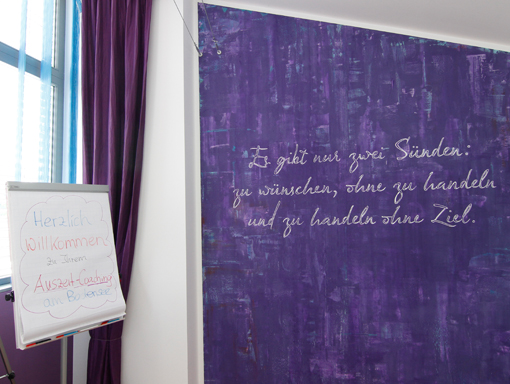 Es gibt nur zwei Sünden:
zu wünschen, ohne zu handeln
und zu handeln ohne Ziel.
Herzlich
Willkommen
zu Ihrem
Auszeit-Coaching
am Bodensee